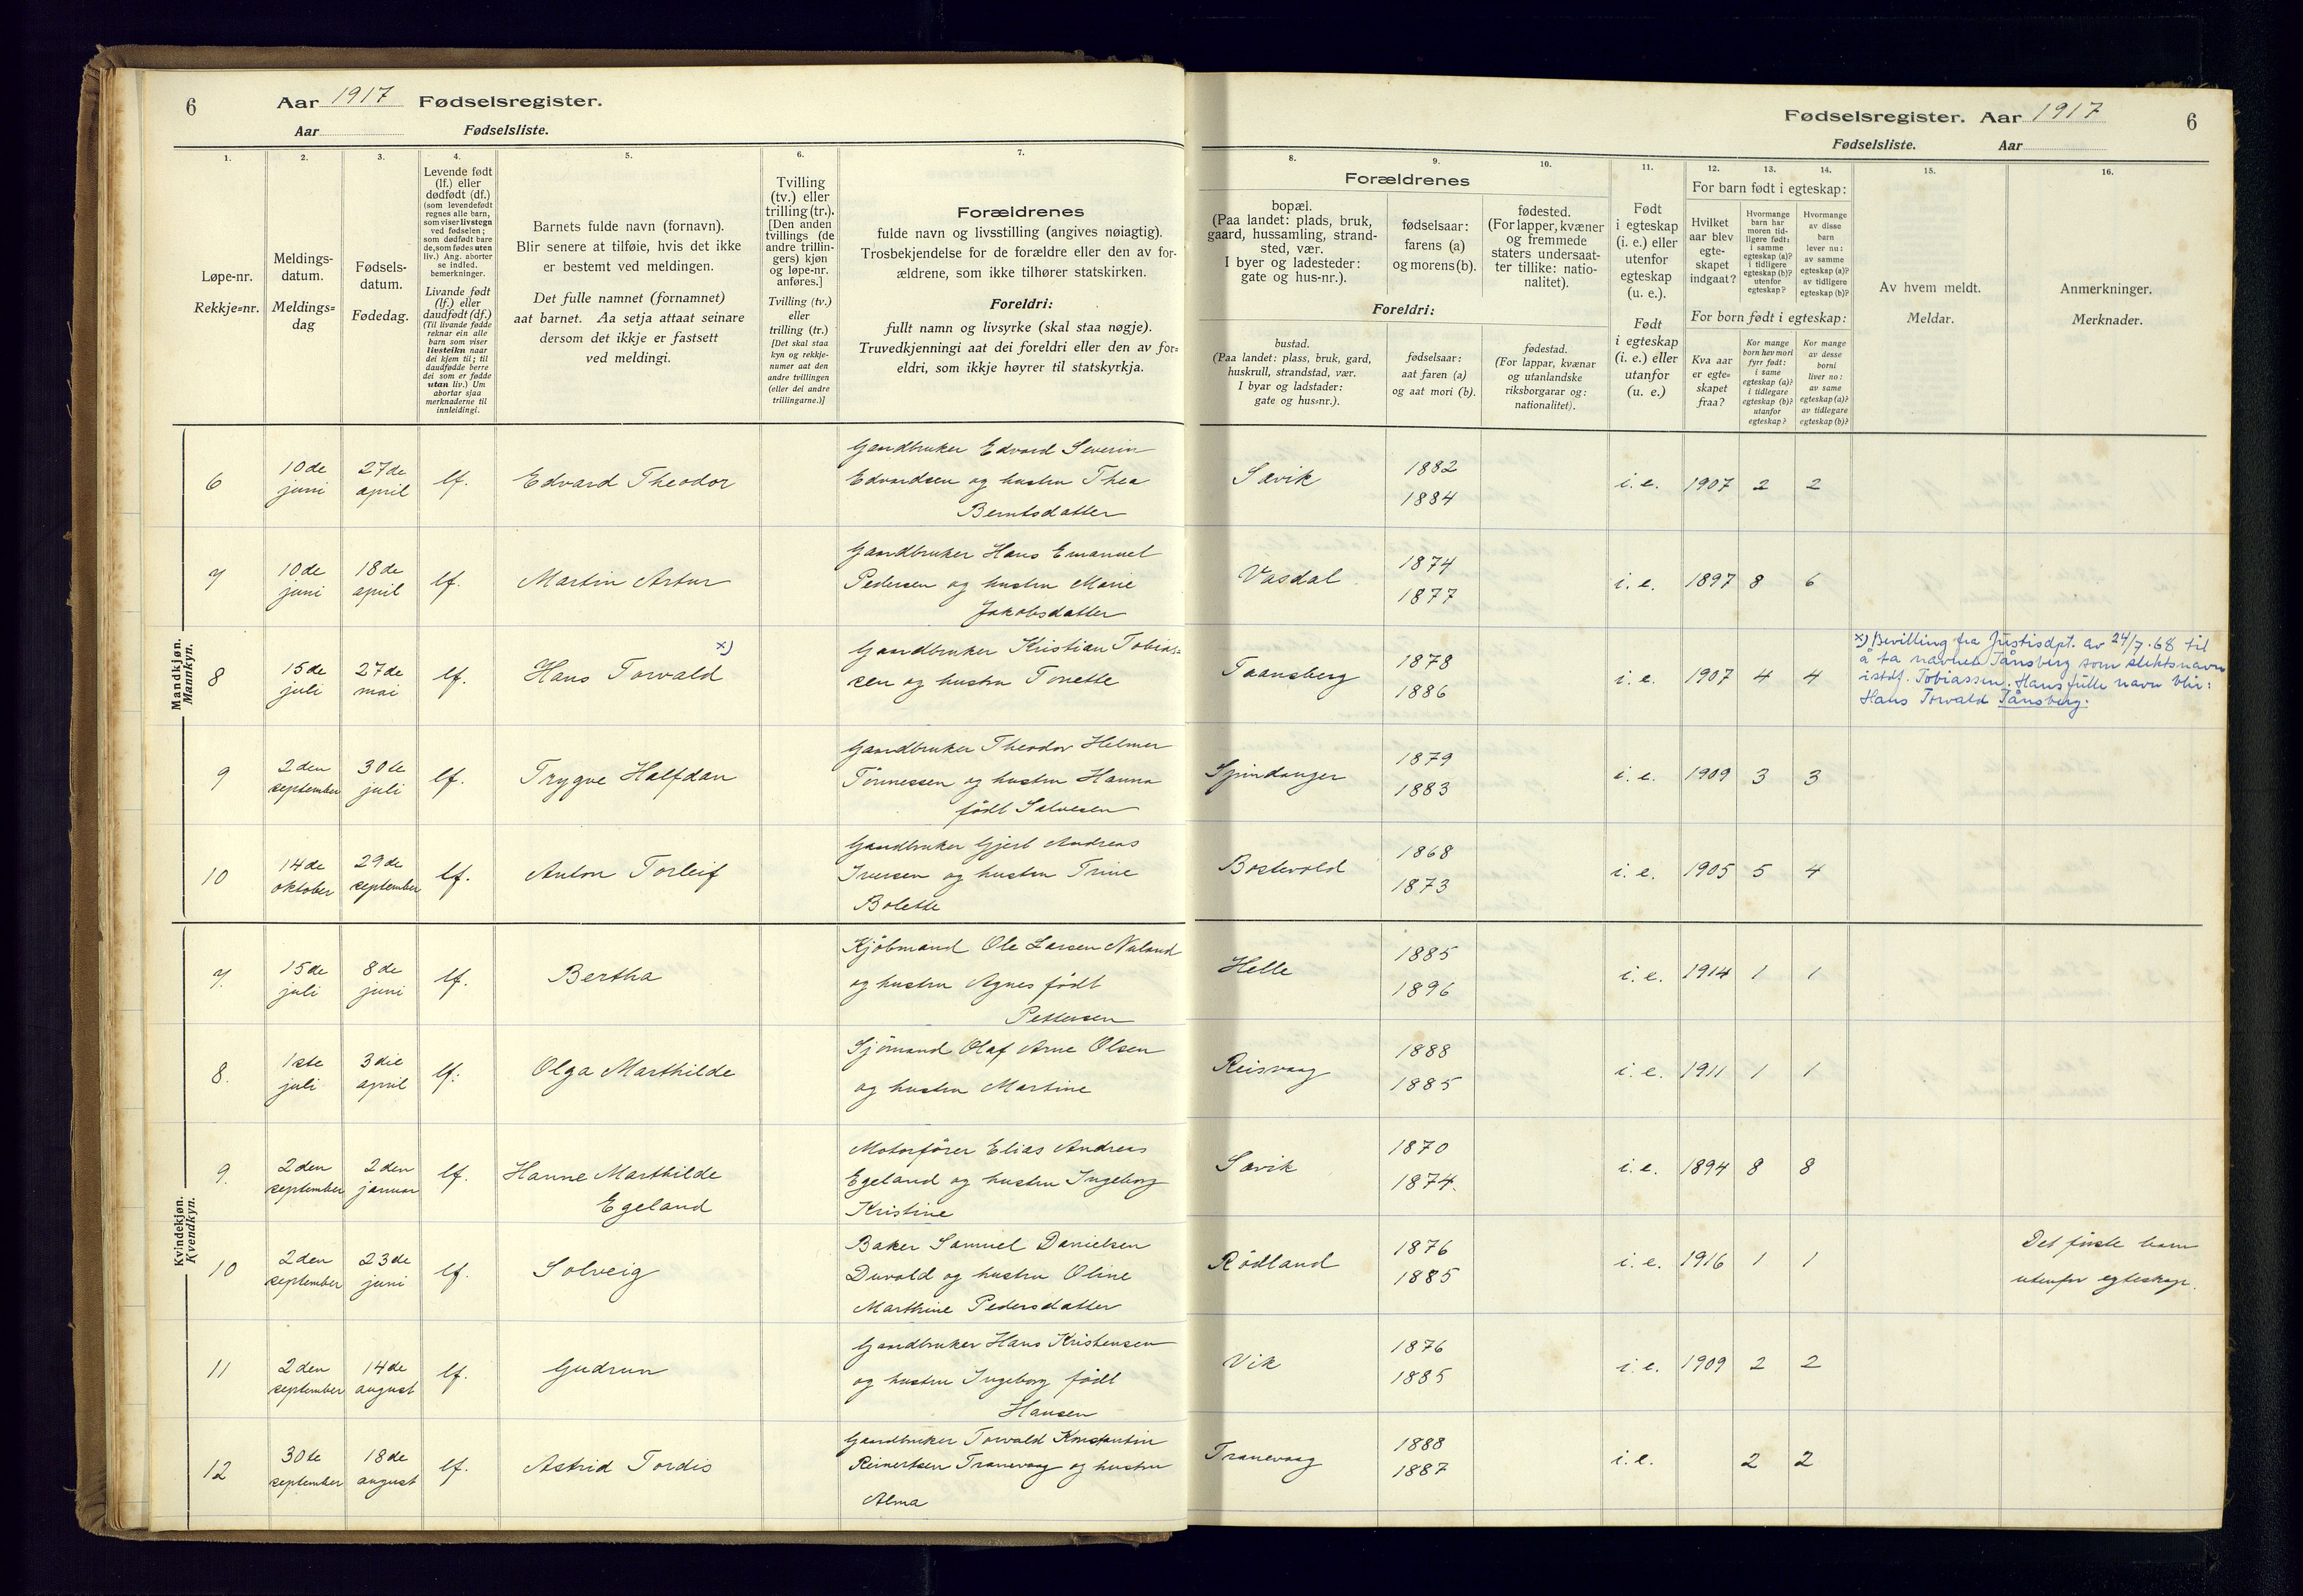 6
Aar 1917 Fødselsregister.
Aar Fødselsliste.
1.
Løpe-nr.
Rekkje=nr.
2.
Meldings-
datum.
Meldings=
dag
3.
Fødsels-
datum.
Fødedag.
4.
Levende født
(lf.) eller
dødfødt (df.)
(som levendefødt
regnes alle barn,
som viser livstegn
ved fødselen;
som dødfødt bare
de, som fødes uten
liv.) Ang. aborter
se indled.
bemerkninger.
Livande født
(lf.) eller
daudfødt (df.)
(Til livande fødde
reknar ein alle
barn som viser
livsteikn naar
dei kjem til; til
daudfødde berre
dei som er fødde
utan liv.) Um
abortar sjaa
merknaderne til
innleidingi.
5.
Barnets fulde navn (fornavn).
Blir senere at tilføie, hvis det ikke
er bestemt ved meldingen.
Det fulle namnet (fornamnet)
aat barnet. Aa setja attaat seinare
dersom det ikkje er fastsett
ved meldingi.
6.
Tvilling
(tv.) eller
trilling (tr.).
[Den anden
tvillings (de
andre trillin-
gers) kjøn
og løpe-nr.
anføres.]
Tvilling (tv.)
eller
trilling (tr.)
[Det skal staa
kyn og rekkje-
numer aat den
andre tvillingen
(eller dei andre
trillingarne.)]
7.
Forældrenes
fulde navn og livsstilling (angives nøiagtig).
Trosbekjendelse for de forældre eller den av for-
ældrene, som ikke tilhører statskirken.
Foreldri:
fullt namn og livsyrke (skal staa nøgje).
Truvedkjenningi aat dei foreldri eller den av for=
eldri, som ikkje høyrer til statskyrkja.
Mandkjøn.
Mannkyn.
6 10de juni 27de april lf. Edvard Theodor
Gaardbruker Edvard Severin
Edvardsen og hustru Thea
Berntsdatter
7 10de juni 18de april lf. Martin Artur
Gaardbruker Hans Emanuel
Pedersen og hustru Marie
Jakobsdatter
8 15de juli 27de mai lf. Hans Torvald x)
Gaardbruker Kristian Tobias=
sen og hustru Tonette
9 2den september 30te juli lf. Trygve Halfdan
Gaardbruker Theodor Helmer
Tönnessen og hustru Hanna
født Salvesen
10 14de oktober 29de september lf. Anton Torleif
Gaardbruker Gjert Andreas
Iversen og hustru Trine
Bolette
Kvindekjøn.
Kvendkyn.
7. 15de juli 8de juni lf. Bertha
Kjöbmand Ole Larsen Naland
og hustru Agnes født
Pettersen
8. 1ste juli 3die april lf. Olga Marthilde
Sjömand Olaf Arne Olsen
og hustru Martine
9. 2den september 2den januar lf. Hanne Marthilde
Egeland
Motorfører Elias Andreas
Egeland og hustru Ingeborg
Kristine
10 2den september 23de juni lf. Solveig
Baker Samuel Danielsen
Duvold og hustru Oline
Marthine Pedersdatter
11 2den september 14de august lf. Gudrun
Gaardbruker Hans Kristensen
og hustru Ingeborg født
Hansen
12 30te september 18de august lf. Astrid Tordis
Gaardbruker Torvald Konstantin
Reinertsen Tranevaag og hustru
Alma
Fødselsregister. Aar 1917
6
Fødselsliste. Aar
8.
Forældrenes
bopæl.
(Paa landet: plads, bruk,
gaard, hussamling, strand-
sted, vær.
I byer og ladesteder:
gate og hus-nr.).
Foreldri:
bustad.
(Paa landet: plass, bruk, gard,
huskrull, strandstad, vær.
I byar og ladstader:
gate og hus=nr.).
9.
fødselsaar:
farens (a)
og morens (b).
fødselsaar:
aat faren (a)
og aat mori (b).
10.
fødested.
(For lapper, kvæner
og fremmede
staters undersaat-
ter tillike: natio-
nalitet).
fødestad.
(For lappar, kvænar
og utanlandske
riksborgarar og:
nationalitet).
11.
Født
i egteskap
(i. e.) eller
utenfor
egteskap
(u. e.).
Født
i egteskap
(i. e.) eller
utanfor
(u. e.)
12. 13. 14.
For barn født i egteskap:
Hvilket
aar blev
egte-
skapet
indgaat?
Hvormange
barn har
moren tid-
ligere født:
i samme
egteskap (a)?
i tidligere
egteskap (b)?
utenfor
egteskap?
Hvormange
av disse
barn
lever nu:
av samme
egteskap (a)?
av tidligere
egteskap (b)?
For born født i egteskap:
Kva aar
er egte=
skapet
fraa?
Kor mange
born hev mori
fyrr født:
i same
egteskap (a)?
i tidlegare
egteskap (b)?
utanfor
egteskap?
Kor mange
av desse
borni
liver no:
av same
egteskap (a)?
av tidlegare
egteskap (b)?
15.
Av hvem meldt.
Meldar.
16.
Anmerkninger.
Merknader.
Sævik 1882 1884 i. e. 1907 2 2
Vasdal 1874 1877 i. e. 1897 8 6
Taansberg 1878 1886 i. e. 1907 4 4
x) Bevilling fra Justisdpt. av 24/7.68 til
å ta navnet Tånsberg som slektsnavn
istdf. Tobiassen. Hans fulle navn blir:
Hans Torvald Tånsberg.
Spindanger 1879 1883 i. e. 1909 3 3
Bostevold 1868 1873 i. e. 1905 5 4
Helle 1885 1896 i. e. 1914 1 1
Reisvaag 1888 1885 i. e. 1911 1 1
Sævik 1870 1874. i. e. 1894 8 8
Rödland 1876 1885 i. e. 1916 1 1
Det første barn
utenfor egteskap.
Vik 1876 1885 i. e. 1909 2 2
Tranevaag 1888 1887 i. e. 2 2